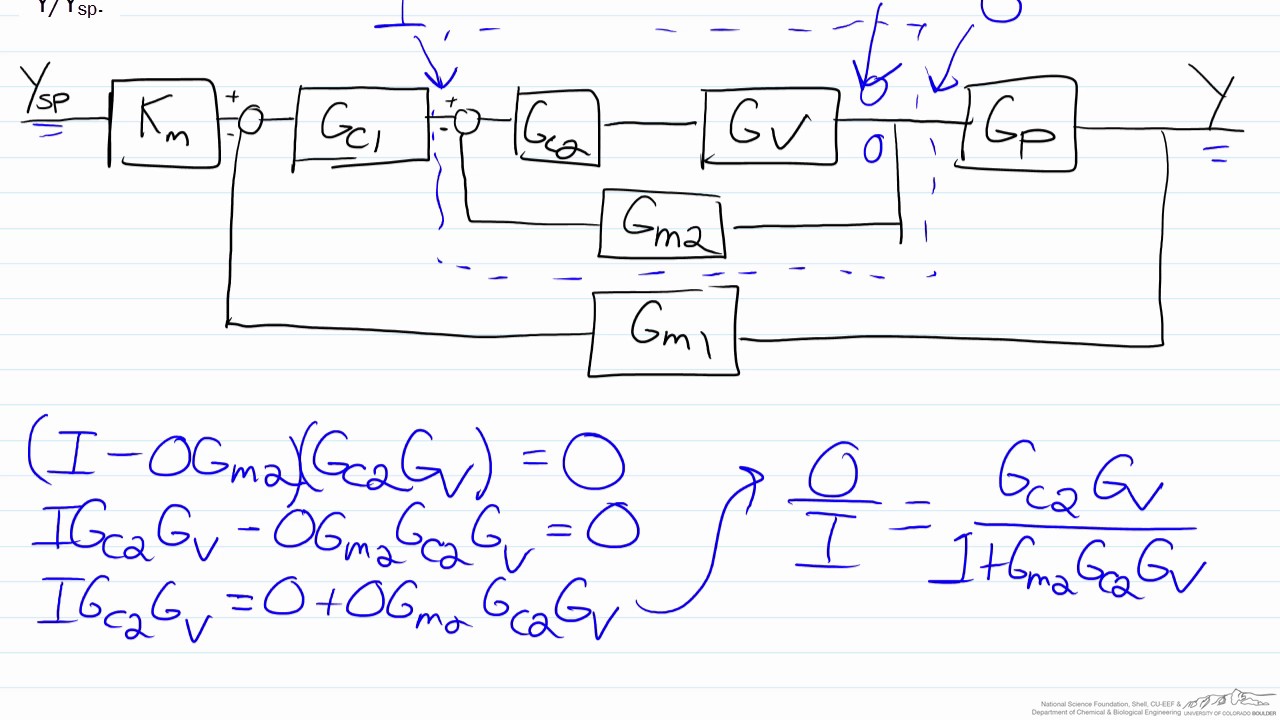 Y/Ysp.
I O
Ysp Km + - Gc1 + - Gc2 GV O O Gp Y
Gm2
Gm1
(I - OGm2)(Gc2GV) = O
IGc2GV - OGm2Gc2GV = O
IGc2GV = O + OGm2 Gc2GV
O/I = Gc2 GV / 1+Gm2Gc2GV
National Science Foundation, Shell, CU-EEF &
Department of Chemical & Biological Engineering UNIVERSITY OF COLORADO BOULDER